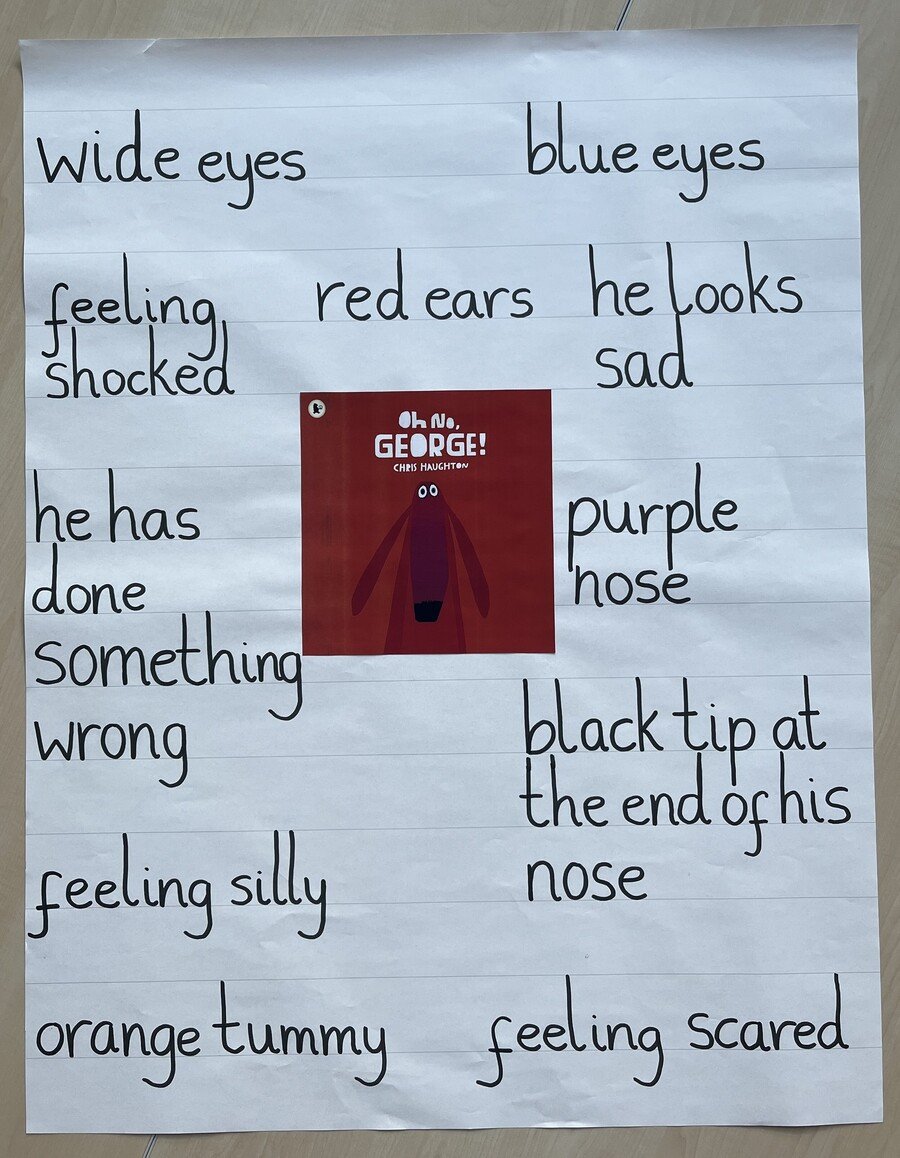 wide eyes
blue eyes
feeling
shocked
red ears
he looks
sad
Oh No,
GEORGE!
CHRIS HAUGHTON
he has
done
something
wrong
purple
nose
black tip at
the end of his
nose
feeling silly
orange tummy
feeling scared